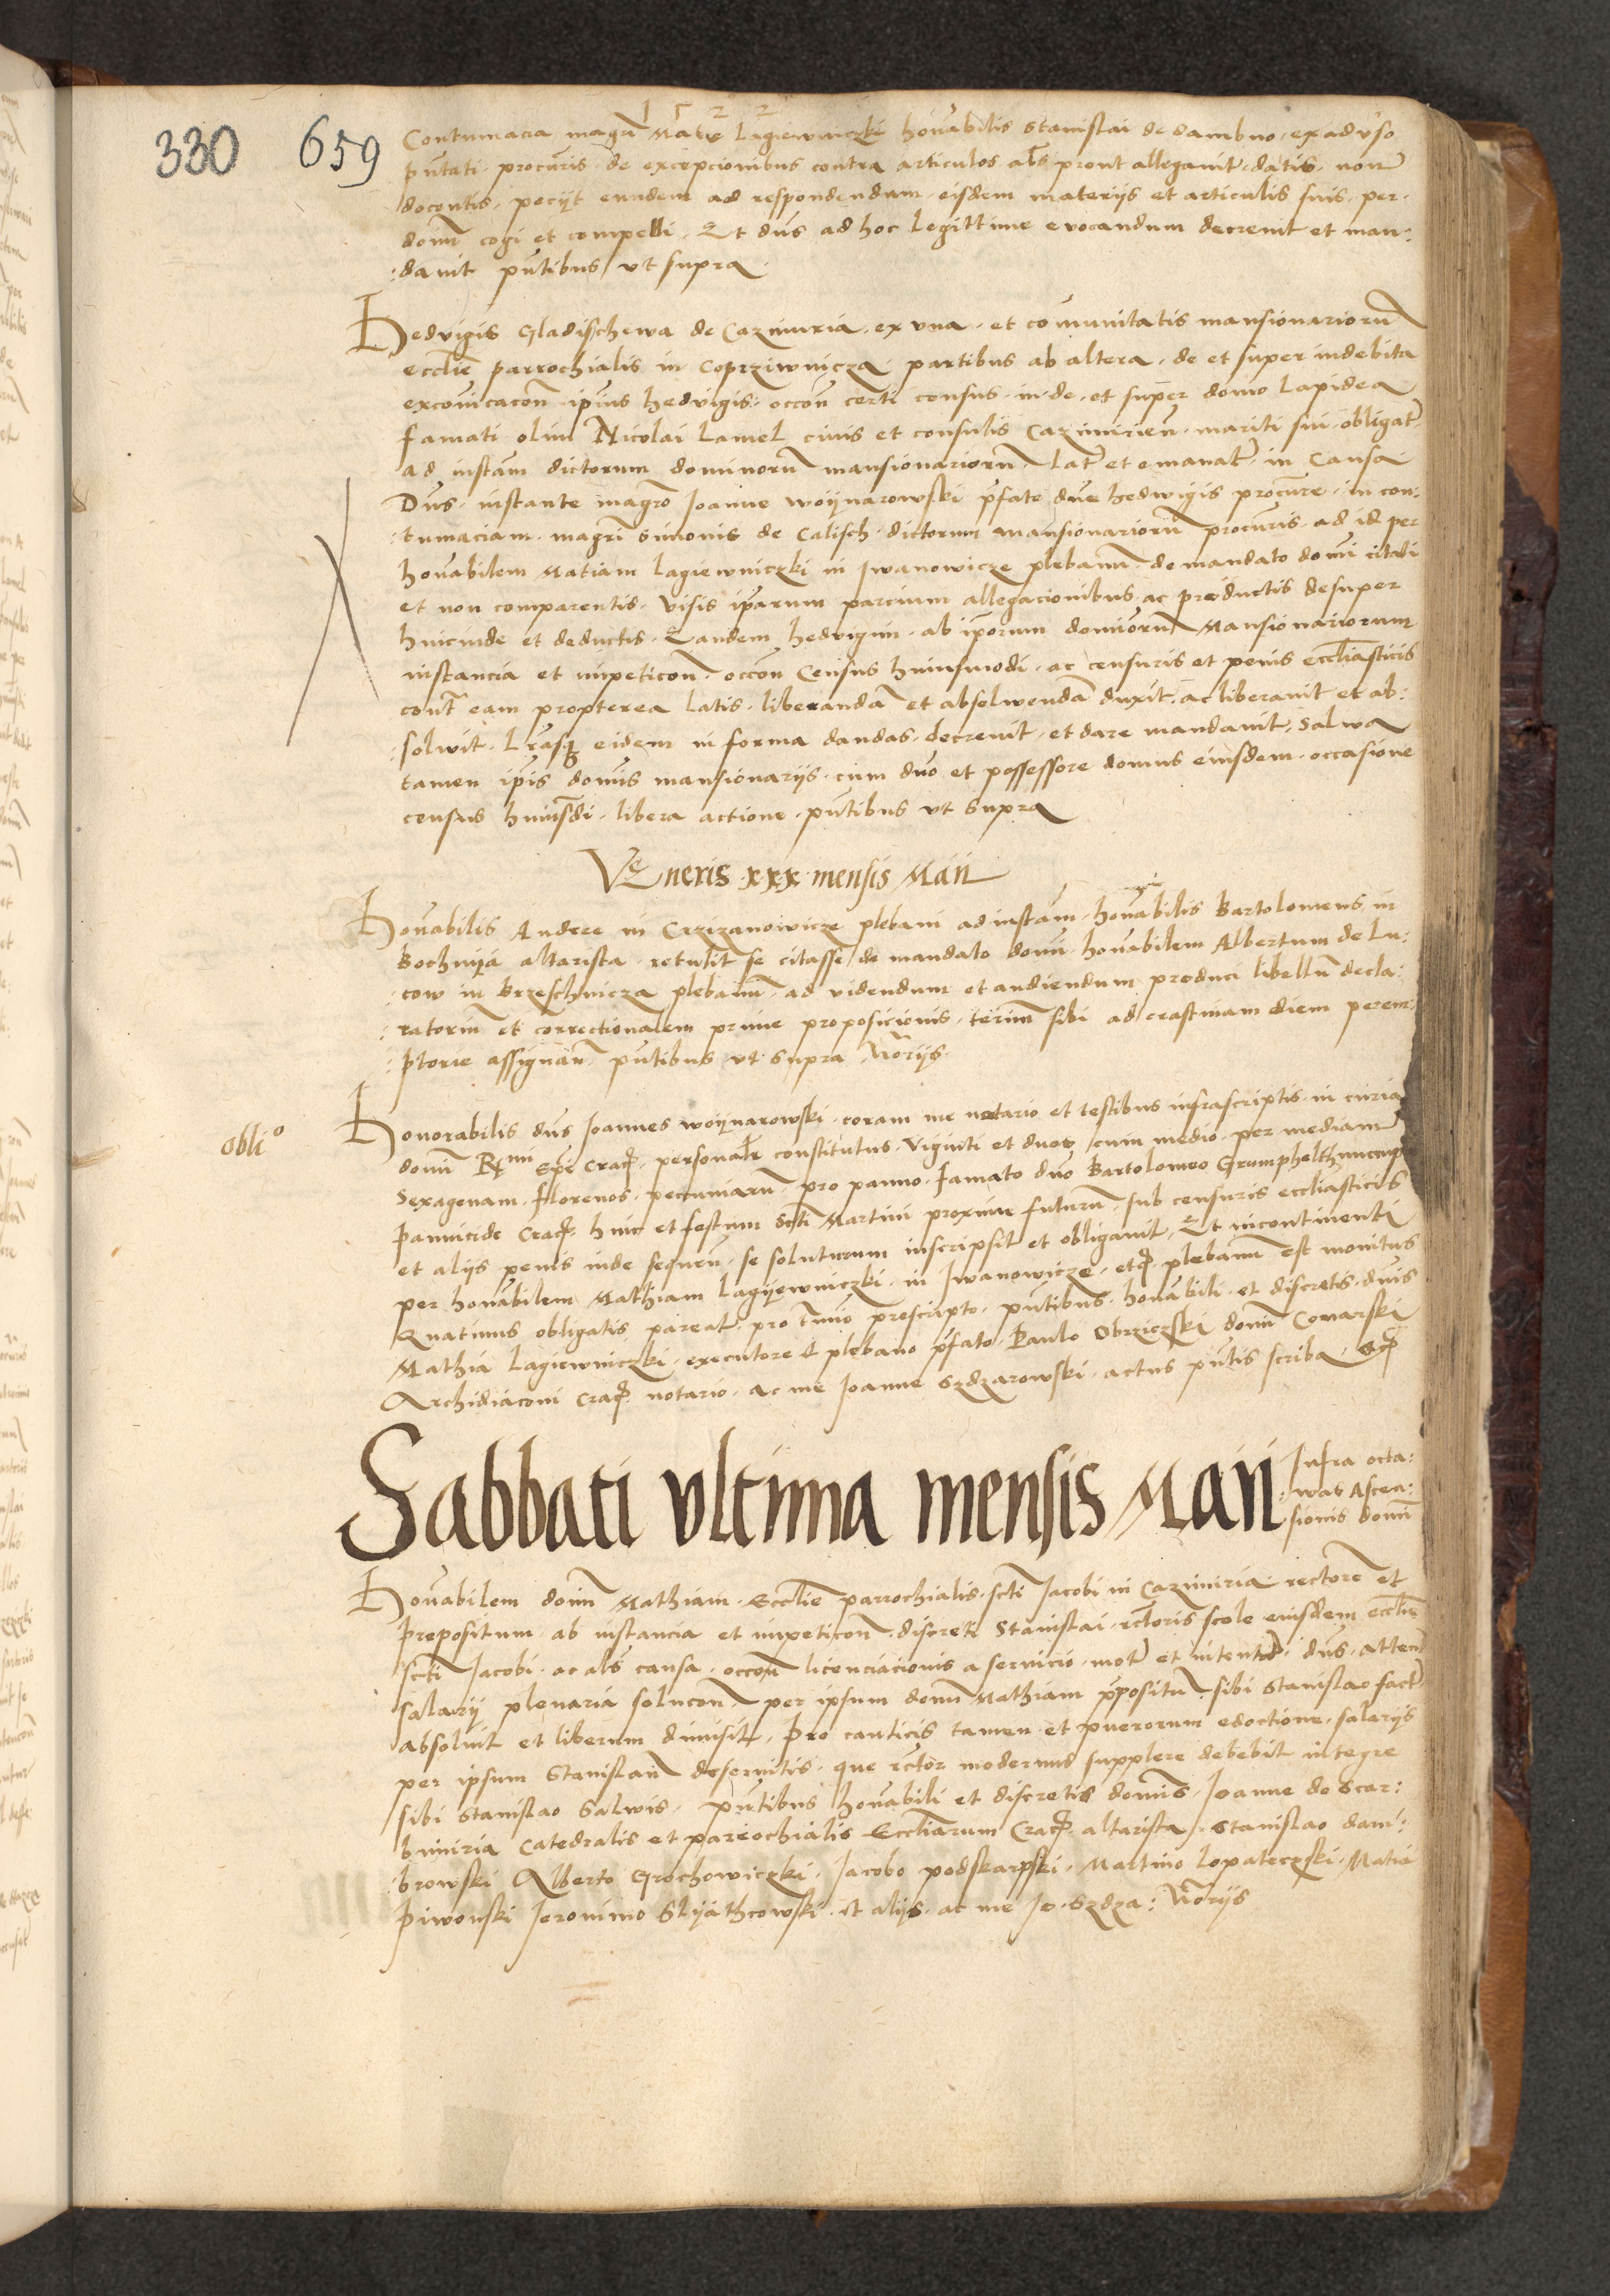 1522
330 659
Contumacia magri Matie Lagiewniczki honabilis Stanislai de dambno ex adverso
pntati procuris de excepcionibus contra articulos als prout allegavit datis non
docentis peciyt eundem ad respondendum eisdem materiys et articulis suis per
dominum cogi et compelli Et dns ad hoc legittime evocandum decrevit et man:
:davit pntibus ut supra
Hedvigis Gladischewa de Cazimiria ex una et comunitatis mansionariorum
ecclie parrochialis in Coprziwnicza partibus ab altera de et super indebita
excoicacon ipius Hedvigis occon certi census in de et super domo lapidea
famati olim Nicolai Lamel civis et consulis Cazimirien mariti sui obligat
ad instam dictorum dominorum mansionariorum lat et emanat in causa
Dns instante magro Joanne Woynarowski pfate dne Hedwigis procure in con:
:tumaciam magri Simonis de Calisch dictorum mansionariorum procuris ad id per
honabilem Matiam Lagiewniczki in Iwanowicze plebanum de mandato domini citati
et non comparentis visis iparum parcium allegacionibus ac productis desuper
hincinde et deductis Eandem Hedvigim ab iporum dominorum Mansionariorum
instancia et impeticon occon Census huiusmodi ac censuris et penis eccliasticis
cont eam propterea latis liberandam et absolwendam duxit ac liberavit et ab:
:solwit Lrasq eidem in forma dandas decrevit et dare mandavit Salwa
tamen ipis domis mansionariys cum dno et possessore domus eiusdem occasione
census huiusmodi libera actione pntibus ut supra
Veneris xxx mensis Maii
Honabilis Andree in Czizanowicze plebani ad instam honabilis Bartolomeus in
Bochniya altarista retulit se citasse de mandato domini honabilem Albertum de Lu:
:cow in Brzeschnicza plebanum ad videndum et audiendum produci libellum decla:
:ratorium et correctionalem prime proposicionis terminum sibi ad crastinam diem perem:
:ptorie assignan pntibus ut supra Notariys
oblio
Honorabilis dns Joannes Woynarowski coram me notario et testibus infrascriptis in curia
domini Rmi Epi Crac personalr constitutus Viginti et duos cum medio per mediam
Sexagenam florenos pecuniarum pro panno famato dno Bartolomeo
pannicide Crac hinc et festum Scti Martini proxime futurum sub censuris eccliasticis
et aliys penis inde sequen se soluturum inscripsit et obligavit Et incontinenti
per honabilem Mathiam Lagyewniczki in Iwanowicze etc plebanum est monitus
Quatinus obligatis pareat pro termino prescripto pntibus honabili et discretis dnis
Mathia Lagiewniczki executore et plebano pfato Paulo Obrziezski domini Conarski
Archidiaconi Crac notario ac me Joanne Szdzarowski actus pntis scriba etc
Sabbati ultima mensis Maii Infra octa:
:was Ascen:
:sionis domini
Honabilem dominum Mathiam Ecclie parrochialis scti Jacobi in Cazimiria rectorem et
prepositum ab instancia et impeticon discreti Stanislai rectoris scole eiusdem ecclie
scti Jacobi ac als causa occon licenciacionis a servicio mot et intentat dns atten
salariy plenaria solucon per ipsum dominum Mathiam ppositum sibi Stanislao fact
absolvit et liberum dimisit Pro canticis tamen et puerorum edoctione salariys
per ipsum Stanislaum deservitis que rector modernus supplere debebit integre
sibi Stanislao Salwis pntibus honabili et discretis dominis Joanne de Scar:
bimiria Catedralis et parrochialis Eccliarum Crac altarista Stanislao dam:
:browski Alberto Grochowiczki Jacobo podskarpski Martino Lopateczski Matia
Piwonski Jeronimo Slyathcowski et aliys ac me Jo Szdza: Notariys